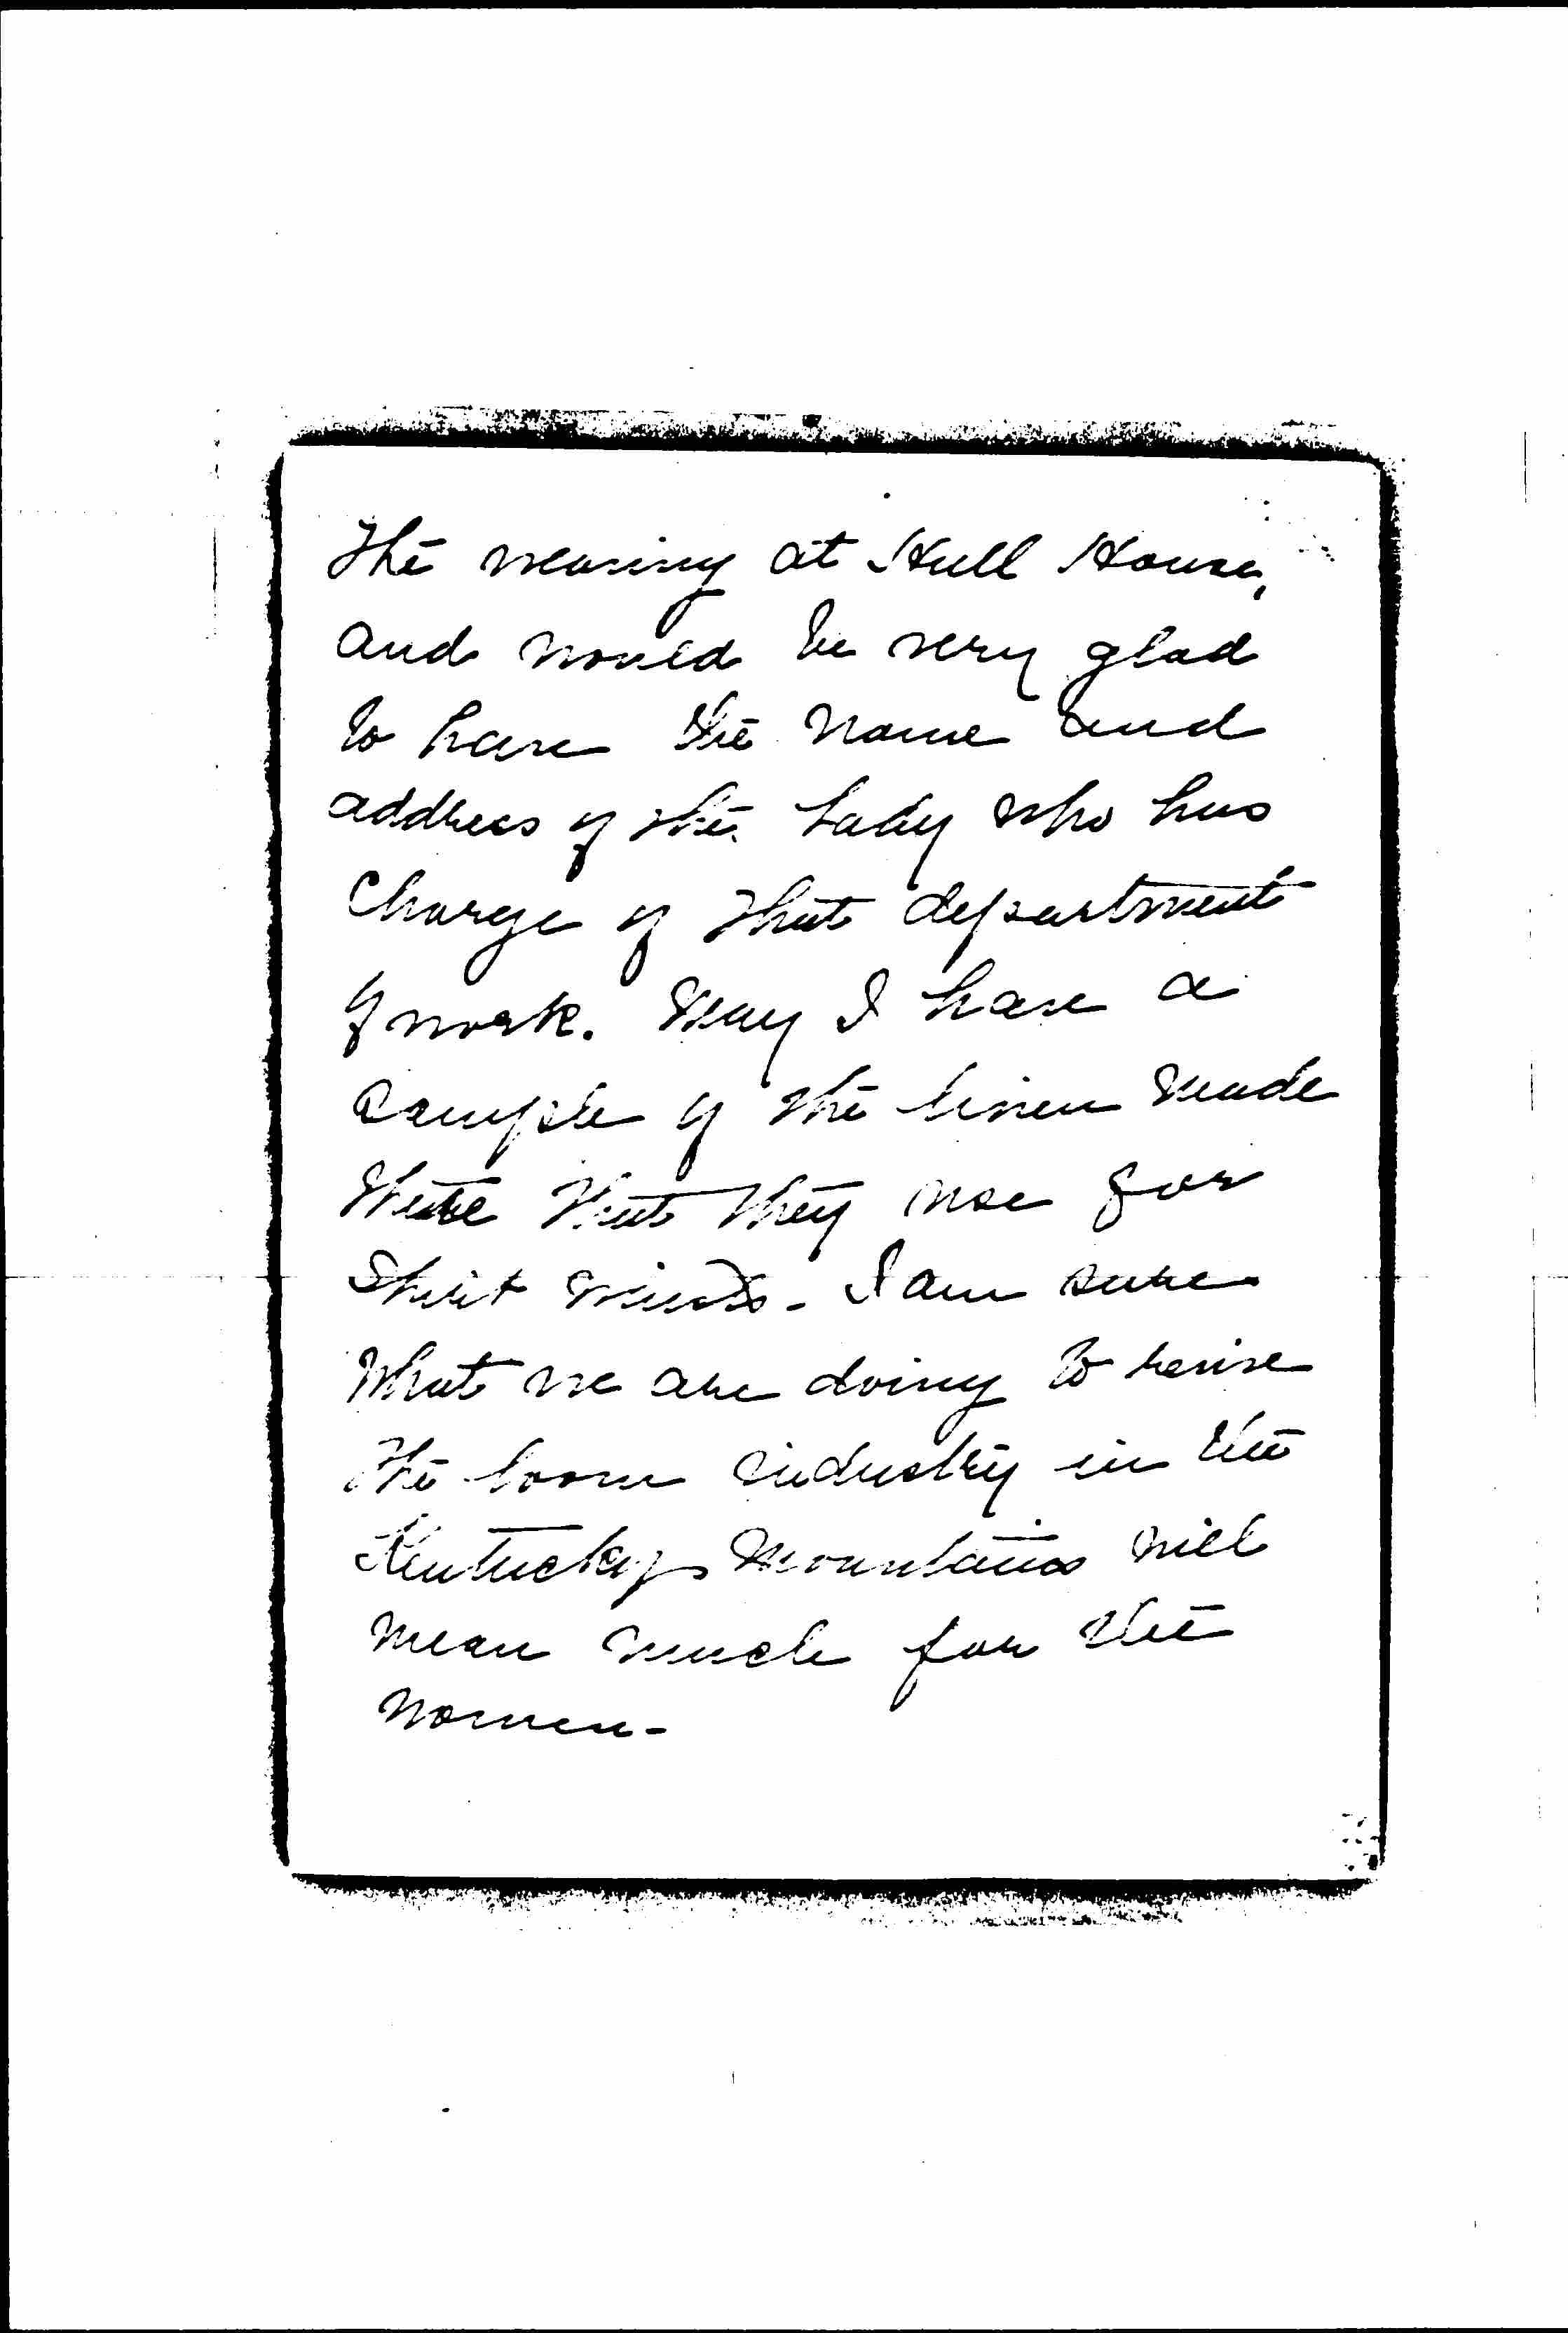 The weaving at Hull House,
and would be very glad
to have the name and
address of the lady who has
charge of that department
of work. May I have a
sample of the linen made
there that they use for
Shirt waists - I am sure
what we are doing to revive
the loom industry in the
Kentucky mountains will
mean much for the
women -